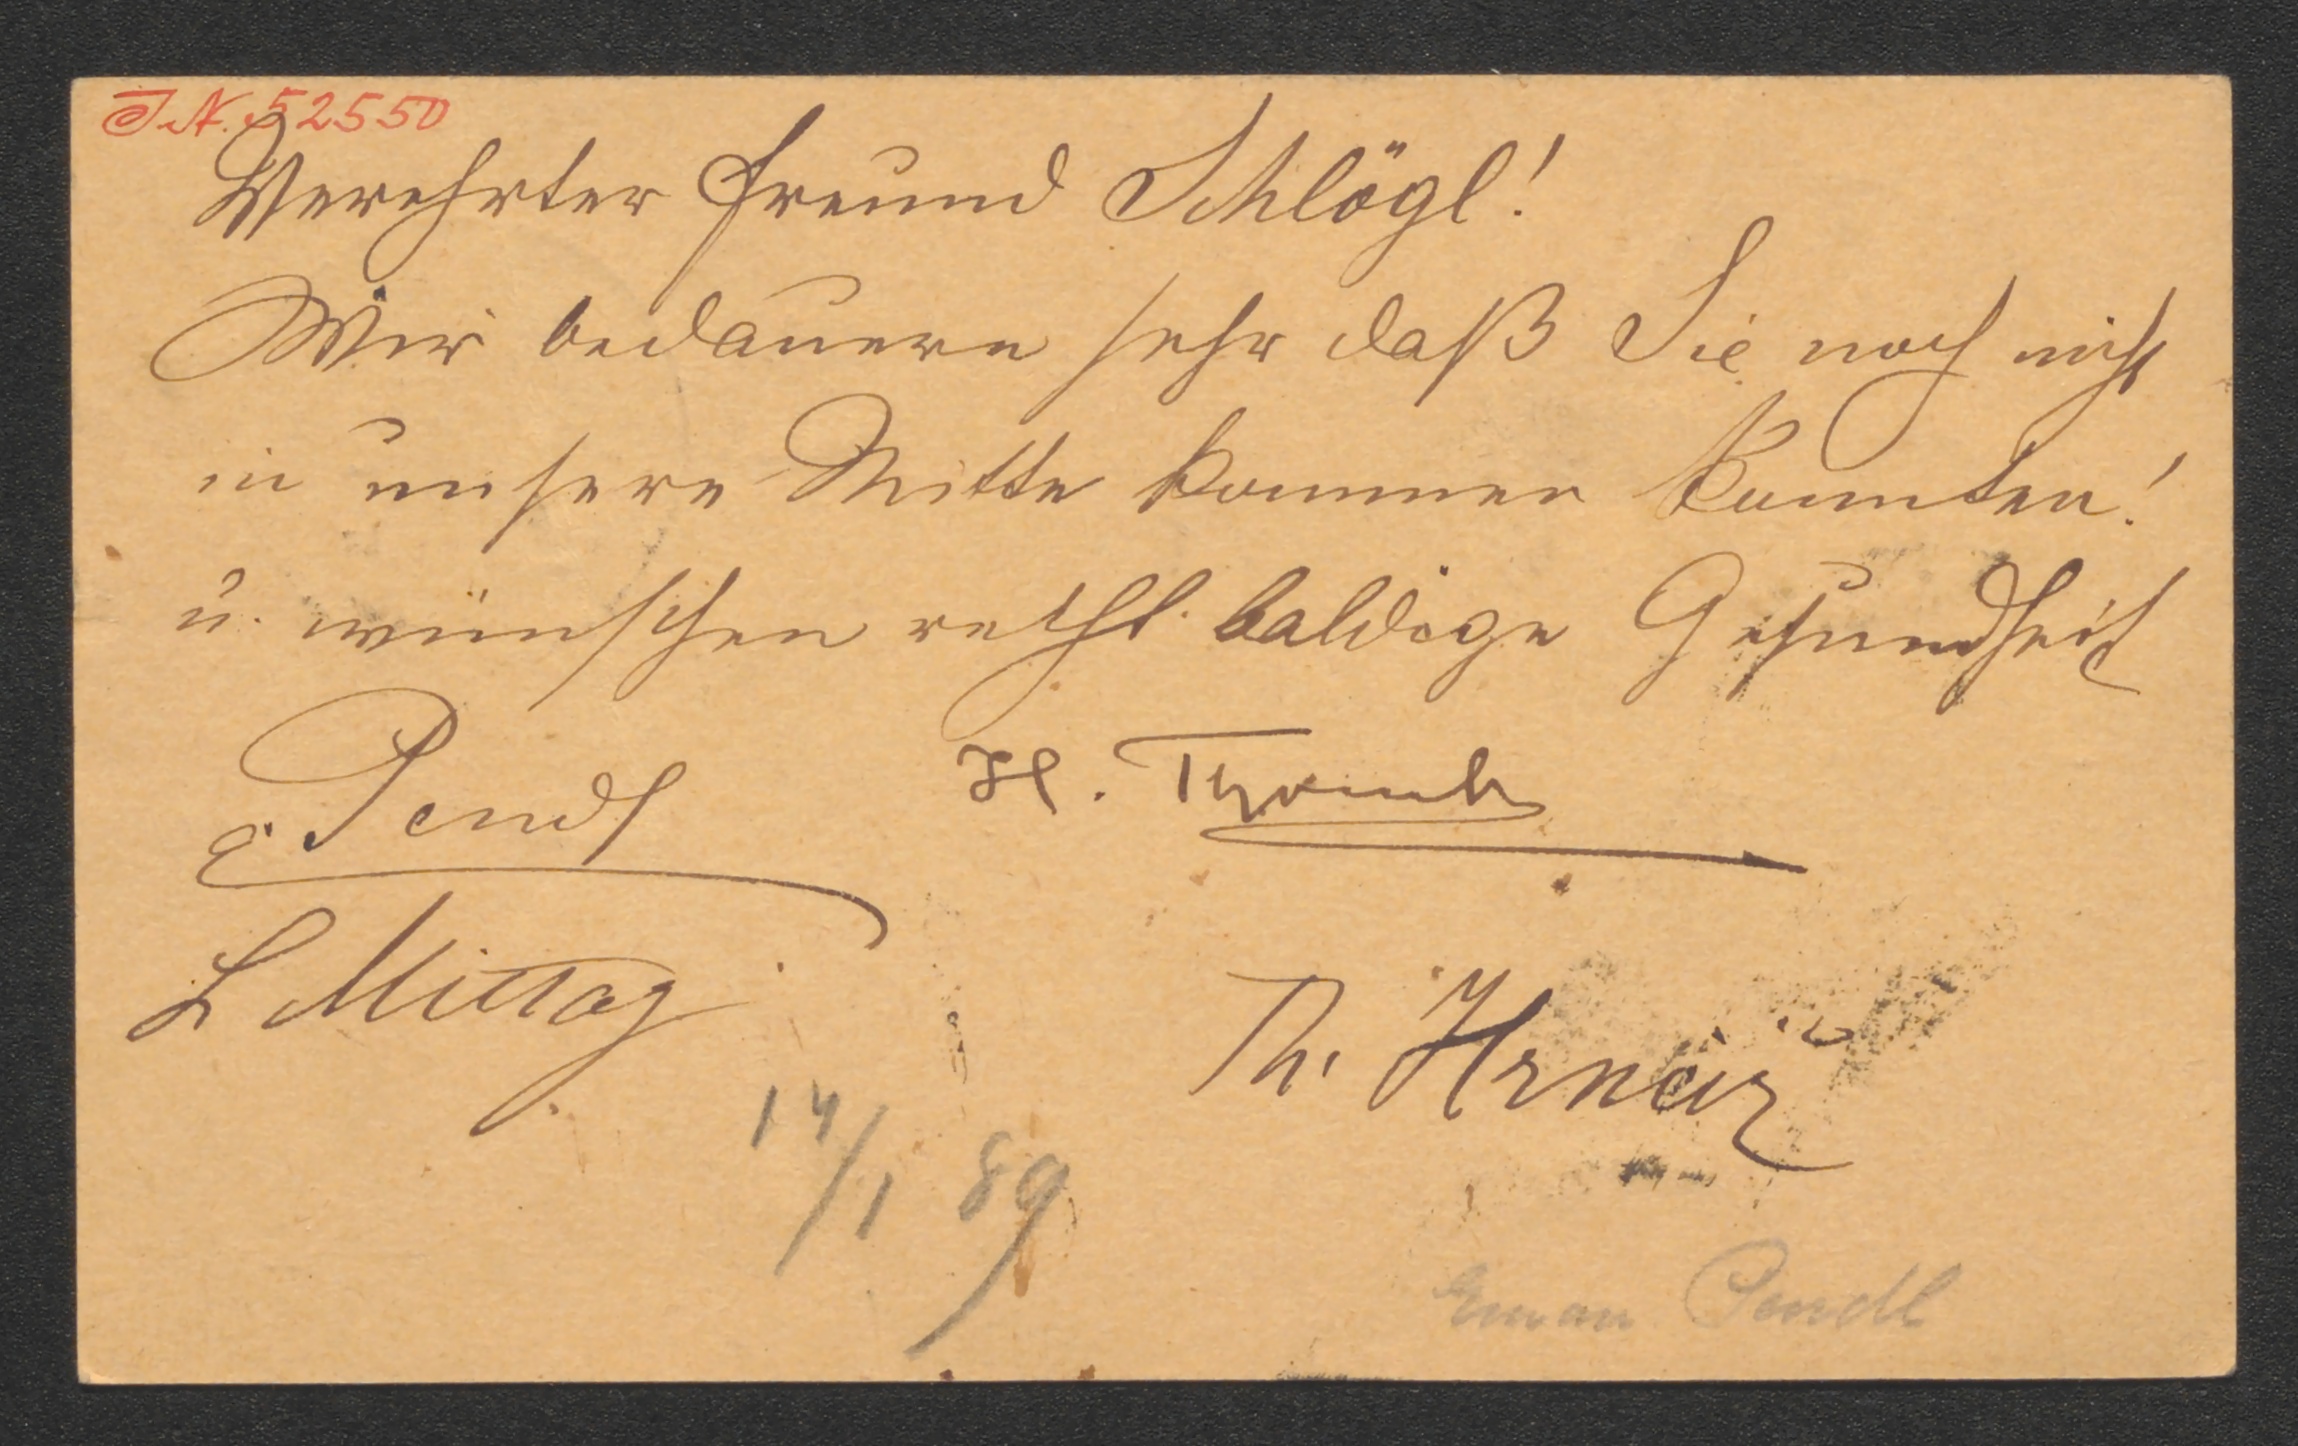 J.N. 52550
Verehrter Freund Schlögl!
Wir bedauern sehr daß Sie noch nicht
in unsere Mitte kommen konnten!
u. wünschen recht baldige Gesundheit
E. Pendl
H.
L Mittag
Th. Hrnčiř
14/1 89
Eman Pendl